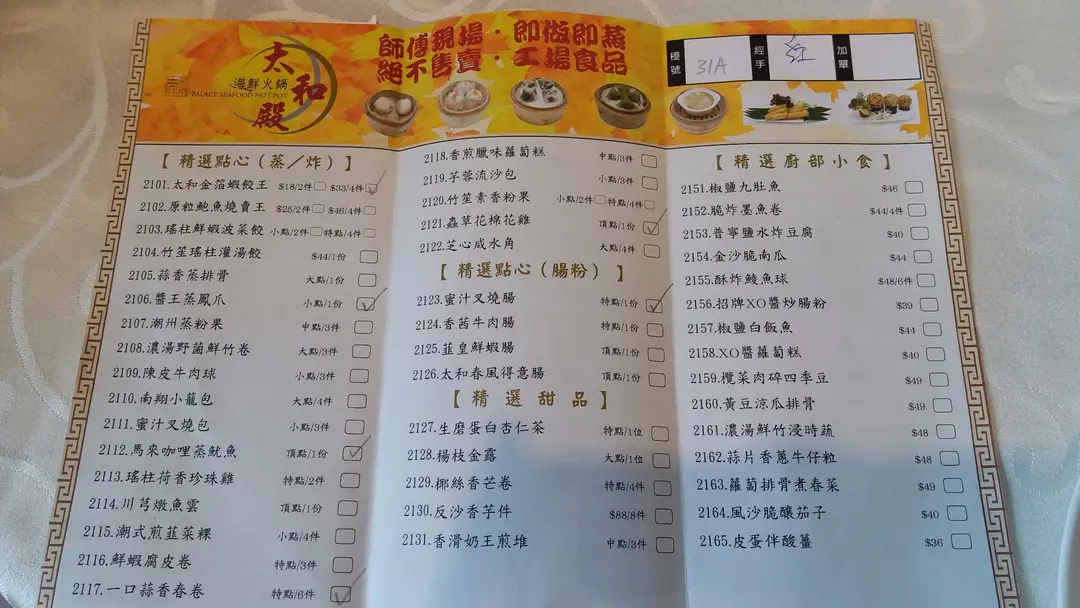 太和殿
海鮮火鍋
PALACE SEAFOOD HOT POT
師傅現場·即做即蒸
絕不售賣·工場食品
檯號 31A
經手
加單
【精選點心(蒸/炸)】
2101.太和金箔蝦餃王 $18/2件 $33/4件
2102.原粒鮑魚燒賣王 $25/2件 $46/4件
2103.瑤柱鮮蝦波菜餃 小點/2件 特點/4件
2104.竹笙瑤柱灌湯餃 $44/1份
2105.蒜香蒸排骨 大點/1份
2106.醬王蒸鳳爪 小點/1份
2107.潮州蒸粉果 中點/3件
2108.濃湯野菌鮮竹卷 大點/3件
2109.陳皮牛肉球 小點/3件
2110.南翔小籠包 大點/4件
2111.蜜汁叉燒包 小點/3件
2112.馬來咖哩蒸魷魚 頂點/1份
2113.瑤柱荷香珍珠雞 特點/2件
2114.川芎燉魚雲 頂點/1份
2115.潮式煎韮菜粿 小點/4件
2116.鮮蝦腐皮卷 特點/3件
2117.一口蒜香春卷 特點/6件
2118.香煎臘味蘿蔔糕 中點/3件
2119.芋蓉流沙包 小點/3件
2120.竹笙素香粉果 小點/2件 特點/4件
2121.蟲草花棉花雞 頂點/1份
2122.芝心咸水角 大點/4件
【精選點心(腸粉)】
2123.蜜汁叉燒腸 特點/1份
2124.香茜牛肉腸 特點/1份
2125.韮皇鮮蝦腸 頂點/1份
2126.太和春風得意腸 頂點/1份
【精選甜品】
2127.生磨蛋白杏仁茶 特點/1位
2128.楊枝金露 大點/1位
2129.椰絲香芒卷 特點/4件
2130.反沙香芋件 $88/8件
2131.香滑奶王煎堆 中點/3件
【精選廚部小食】
2151.椒鹽九肚魚 $46
2152.脆炸墨魚卷 $44/4件
2153.普寧鹽水炸豆腐 $40
2154.金沙脆南瓜 $44
2155.酥炸鯪魚球 $48/6件
2156.招牌XO醬炒腸粉 $39
2157.椒鹽白飯魚 $44
2158.XO醬蘿蔔糕 $40
2159.欖菜肉碎四季豆 $49
2160.黃豆涼瓜排骨 $49
2161.濃湯鮮竹浸時蔬 $48
2162.蒜片香蔥牛仔粒 $48
2163.蘿蔔排骨煮春菜 $49
2164.風沙脆釀茄子 $40
2165.皮蛋伴酸薑 $36